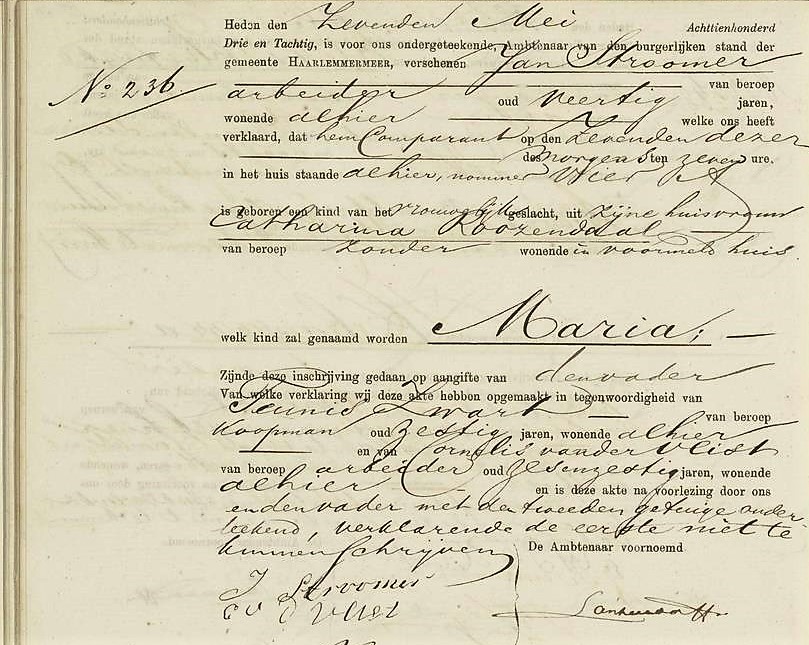 Heden den Zevenden Mei Achttienhonderd
Drie en Tachtig, is voor ons ondergeteekende, Ambtenaar van den burgerlijken stand der
gemeente HAARLEMMERMEER, verschenen Jan Stroomer
van beroep
No 236.
arbeider oud veertig jaren,
wonende alhier welke ons heeft
verklaard, dat hem Comparant op den Zevenden dezer
des morgens ten zeven ure.
in het huis staande alhier, nommer Vier A
is geboren een kind van het vrouwelijk geslacht, uit zijne huisvrouw
Catharina Roozendaal
van beroep zonder wonende in voormeld huis.
welk kind zal genaamd worden Maria;
Zijnde deze inschrijving gedaan op aangifte van den vader
Van welke verklaring wij deze akte hebben opgemaakt in tegenwoordigheid van
Teunis Zwart van beroep
Koopman oud zestig jaren, wonende alhier
en van Cornelis van der Vlist
van beroep arbeider oud zesenzestig jaren, wonende
alhier en is deze akte na voorlezing door ons
en den vader met den tweeden getuige onder-
teekend, verklarende de eerste niet te
kunnen schrijven
De Ambtenaar voornoemd
J Stroomer
C v d Vlist